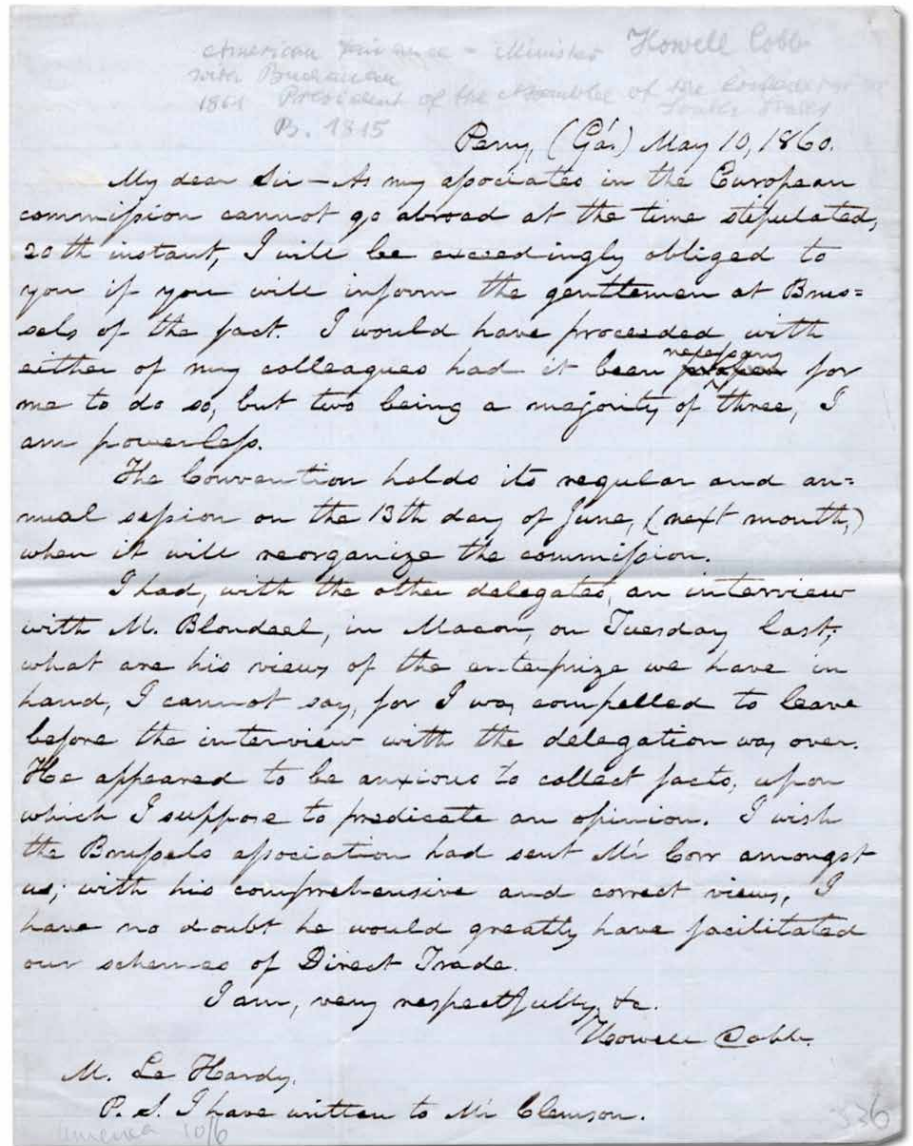 American Finance - Minister Howell Cobb
with Buchanan
1861 President of the Assemblee of the Confederation
South States
B. 1815
Perry, (Ga.) May 10, 1860.
My dear Sir — As my associates in the European
commission cannot go abroad at the time stipulated,
20th instant, I will be exceedingly obliged to
you if you will inform the gentlemen at Brus=
sels of the fact. I would have proceeded with
necessary
either of my colleagues had it been for
me to do so, but two being a majority of three, I
am powerless.
The Convention holds its regular and an=
nual session on the 13th day of June, (next month,)
when it will reorganize the commission.
I had, with the other delegates, an interview
with M. Blondeel, in Macon, on Tuesday last;
what are his views of the enterprize we have in
hand, I cannot say, for I was compelled to leave
before the interview with the delegation was over.
He appeared to be anxious to collect facts, upon
which I suppose to predicate an opinion. I wish
the Brussels association had sent Mr Corr amongst
us; with his comprehensive and correct views, I
have no doubt he would greatly have facilitated
our schemes of Direct Trade.
I am, very respectfully, &c.
Howell Cobb.
M. Le Hardy.
P. S. I have written to Mr Clemson.
America 10/6
536